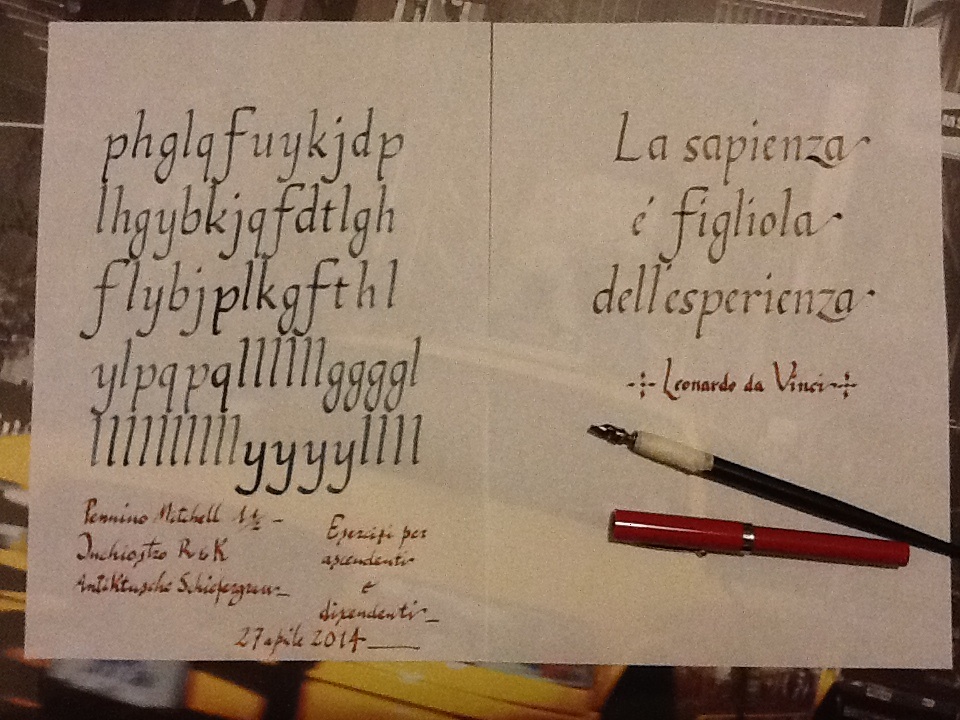 phglqfuykjdp
lhgybkjqfdtlgh
flybjplkgfthl
ylpqpqllllllggggl
llllllllllyyyyllll
Pennino Mitchell 1½
Inchiostro R&K
Antiktusche Schiefergrau
Esercizi per
ascendenti
e
dixendenti
27 apile 2014
La sapienza
é figliola
dell'esperienza
Leonardo da Vinci